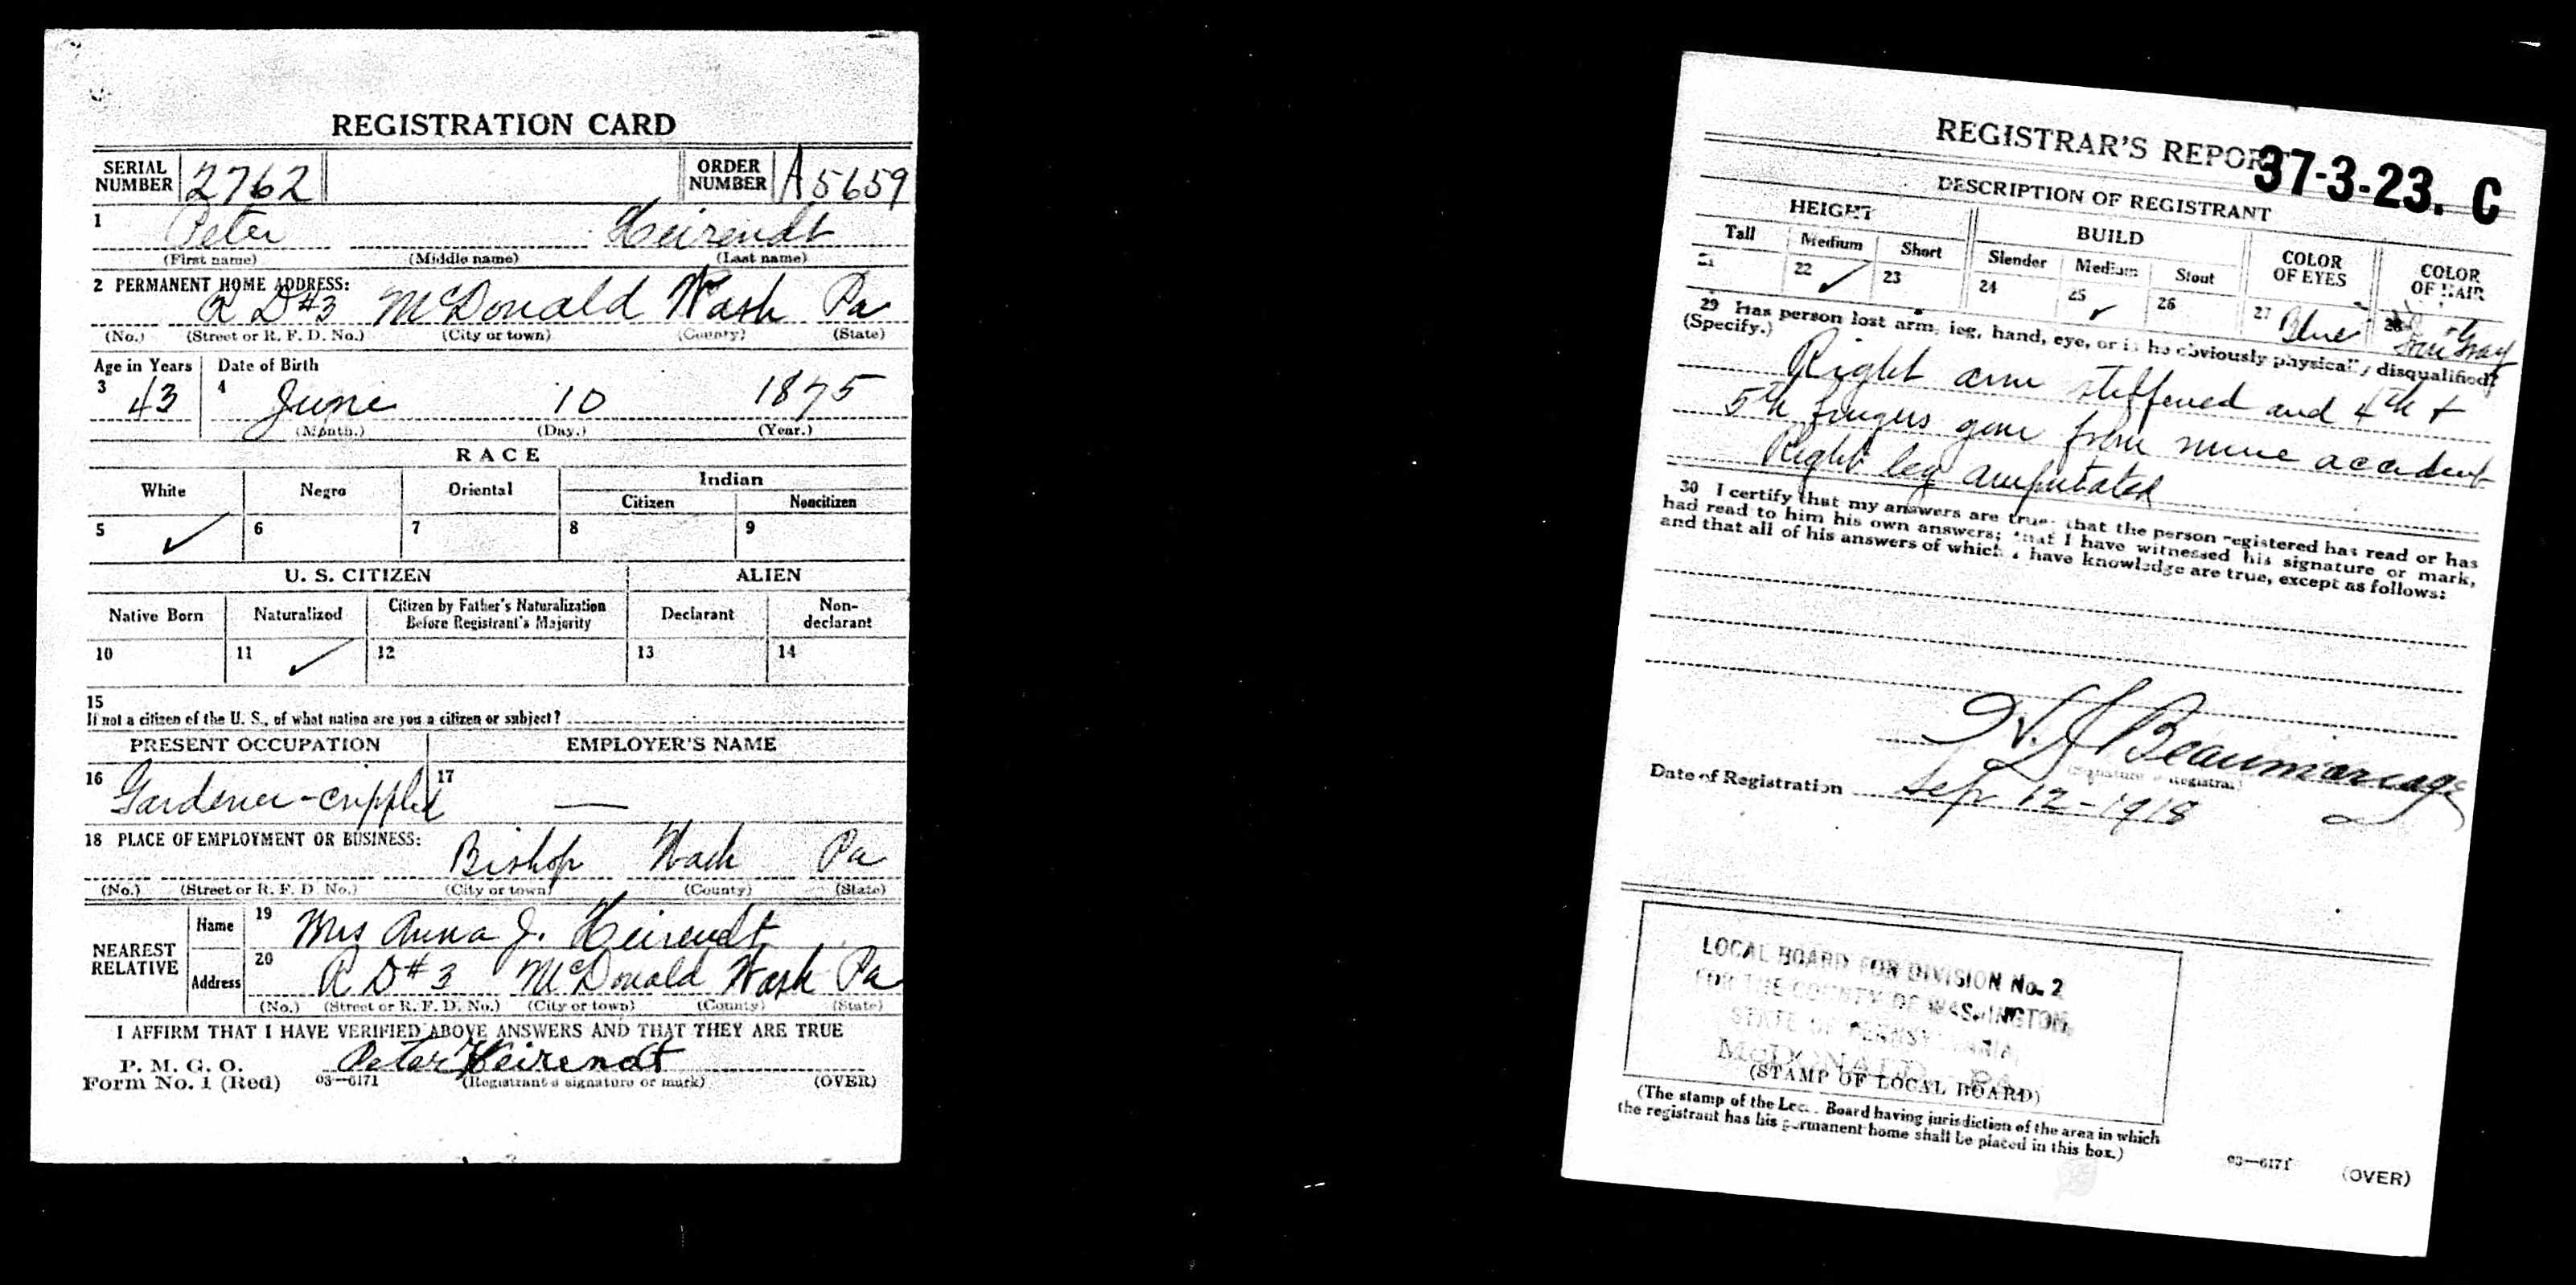 REGISTRATION CARD
SERIAL NUMBER 2762 ORDER NUMBER A5659
1 Peter Heirendt
(First name) (Middle name) (Last name)
2 PERMANENT HOME ADDRESS:
R D #3 McDonald Wash Pa
(No.) (Street or R. F. D. No.) (City or town) (County) (State)
Age in Years Date of Birth
3 43 4 June 10 1875
(Month.) (Day.) (Year.)
RACE
White Negro Oriental Indian
Citizen Noncitizen
5 ✓ 6 7 8 9
U. S. CITIZEN ALIEN
Native Born Naturalized Citizen by Father's Naturalization Before Registrant's Majority Declarant Non-declarant
10 11 ✓ 12 13 14
15
If not a citizen of the U. S., of what nation are you a citizen or subject?
PRESENT OCCUPATION EMPLOYER'S NAME
16 Gardener-crippled 17 —
18 PLACE OF EMPLOYMENT OR BUSINESS:
Bishop Wash Pa
(No.) (Street or R. F. D. No.) (City or town) (County) (State)
NEAREST RELATIVE Name 19 Mrs Anna J. Heirendt
Address 20 R D #3 McDonald Wash Pa
(No.) (Street or R. F. D. No.) (City or town) (County) (State)
I AFFIRM THAT I HAVE VERIFIED ABOVE ANSWERS AND THAT THEY ARE TRUE
P. M. G. O.
Form No. 1 (Red) 03—6171 Peter Heirendt
(Registrant's signature or mark) (OVER)
REGISTRAR'S REPORT
37-3-23. C
DESCRIPTION OF REGISTRANT
HEIGHT BUILD COLOR OF EYES COLOR OF HAIR
Tall Medium Short Slender Medium Stout
21 22 ✓ 23 24 25 ✓ 26 27 Blue 28 Gray
29 Has person lost arm, leg, hand, eye, or is he obviously physically disqualified?
(Specify.)
Right arm stiffened and 4th &
5th fingers gone from mine accident
Right leg amputated
30 I certify that my answers are true; that the person registered has read or has
had read to him his own answers; that I have witnessed his signature or mark,
and that all of his answers of which I have knowledge are true, except as follows:
Beaumariage
(Signature of Registrar)
Date of Registration Sep 12-1918
LOCAL BOARD FOR DIVISION No. 2
FOR THE COUNTY OF WASHINGTON,
STATE OF PENNSYLVANIA,
McDONALD, PA.
(STAMP OF LOCAL BOARD)
(The stamp of the Local Board having jurisdiction of the area in which
the registrant has his permanent home shall be placed in this box.)
03—6171 (OVER)